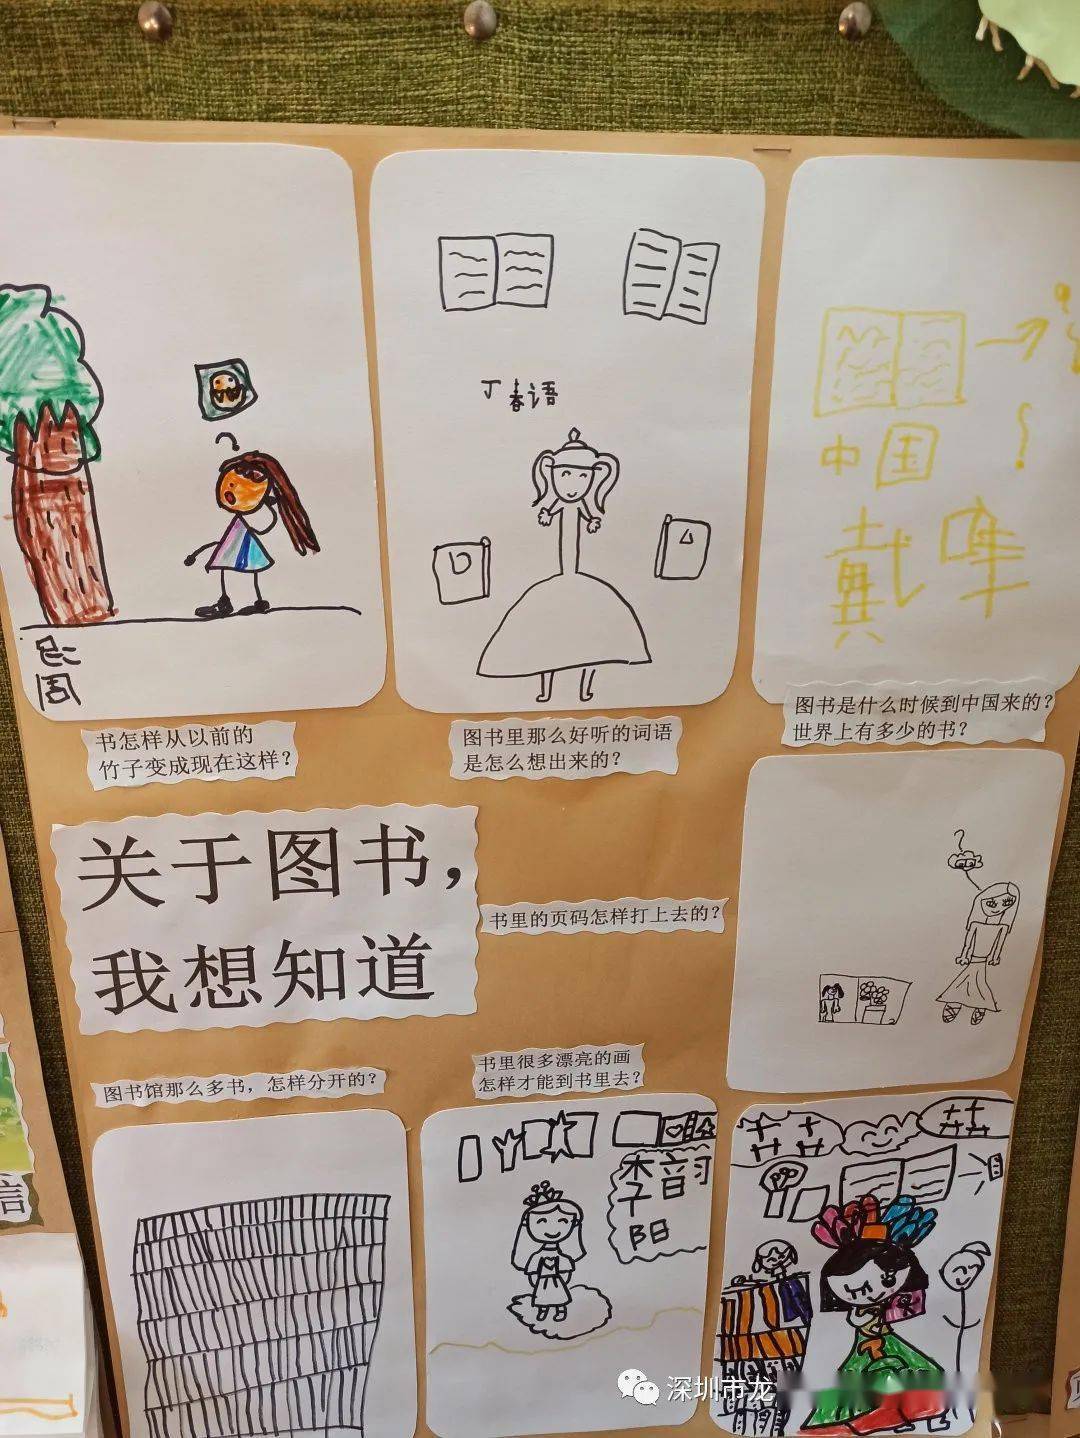 丁春语
中国
周
书怎样从以前的
竹子变成现在这样？
图书里那么好听的词语
是怎么想出来的？
图书是什么时候到中国来的？
世界上有多少的书？
关于图书，
我想知道
书里的页码怎样打上去的？
图书馆那么多书，怎样分开的？
书里很多漂亮的画
怎样才能到书里去？
李韵
阳
信
深圳市龙